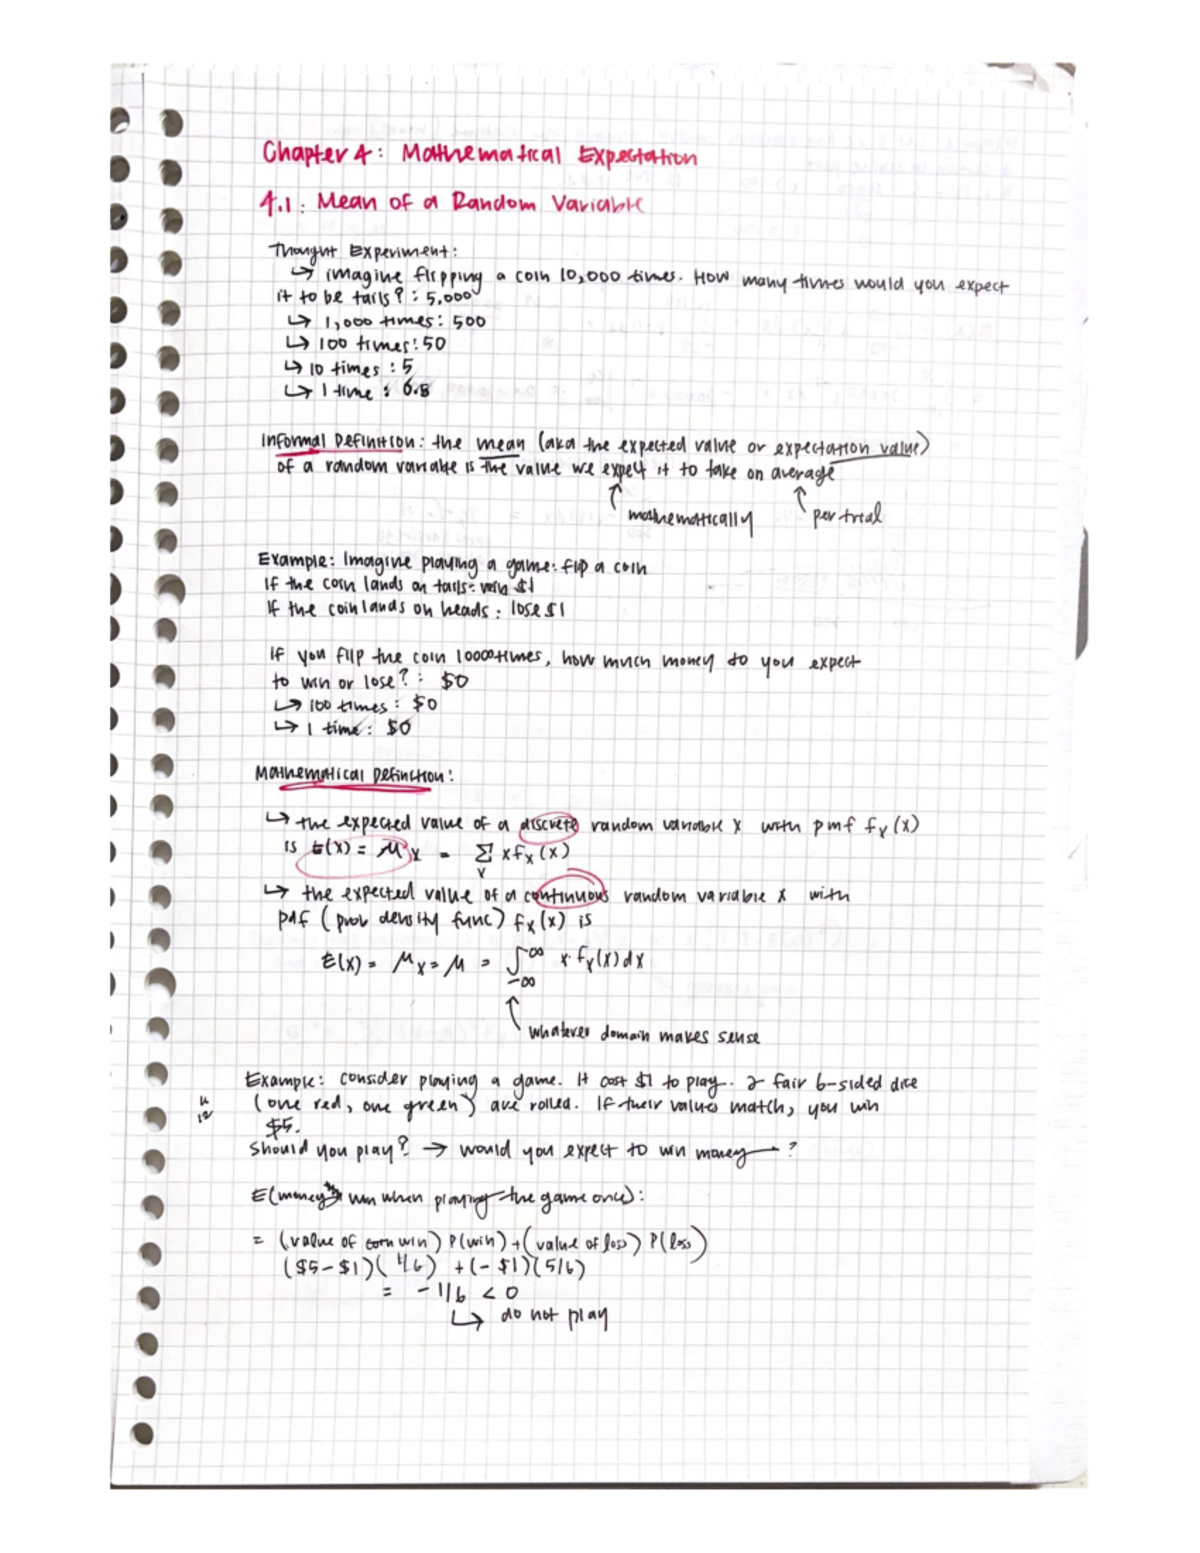 Chapter 4: Mathematical Expectation
4.1: Mean of a Random Variable
Thought Experiment:
↳ imagine flipping a coin 10,000 times. How many times would you expect
it to be tails? : 5,000
↳ 1,000 times: 500
↳ 100 times: 50
↳ 10 times : 5
↳ 1 time : 0.5
Informal Definition: the mean (aka the expected value or expectation value)
of a random variable is the value we expect it to take on average
mathematically
per trial
Example: Imagine playing a game: flip a coin
If the coin lands on tails: win $1
If the coin lands on heads: lose $1
If you flip the coin 10000 times, how much money do you expect
to win or lose? : $0
↳ 100 times : $0
↳ 1 time : $0
Mathematical Definition:
↳ the expected value of a discrete random variable X with pmf fx(x)
is E(x) = μx = Σ x fx(x)
x
↳ the expected value of a continuous random variable X with
pdf (prob density func) fx(x) is
E(x) = μx = μ = ∫_{-∞}^{∞} x · fx(x) dx
whatever domain makes sense
Example: consider playing a game. It cost $1 to play. 2 fair 6-sided dice
(one red, one green) are rolled. If their values match, you win
$5.
Should you play? → would you expect to win money?
E(money win when playing the game once):
= (value of win) P(win) + (value of loss) P(loss)
($5-$1)(1/6) + (-$1)(5/6)
= -1/6 < 0
↳ do not play